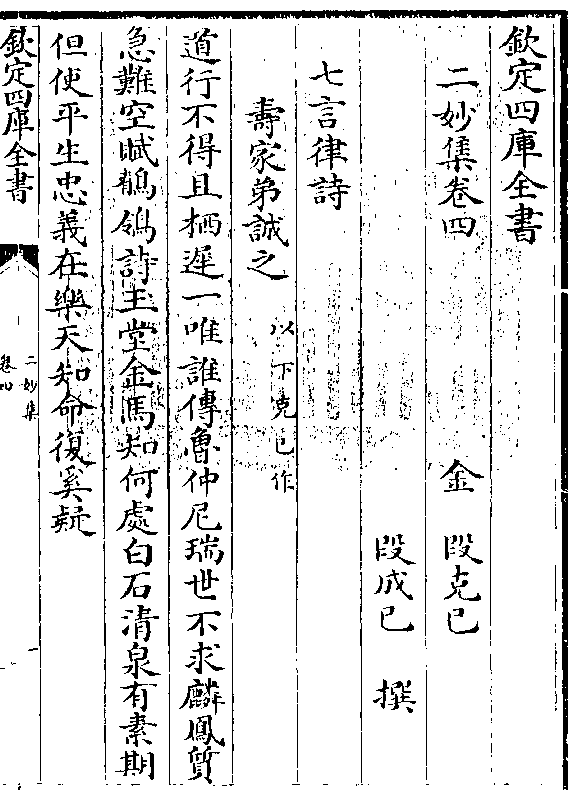 欽定四庫全書
二妙集卷四
金 段克已
段成已 撰
七言律詩
壽家弟誠之
以下克已作
道行不得且栖遲一唯誰傳魯仲尼瑞世不求麟鳳質
急難空賦鶺鴒詩玉堂金馬知何處白石清泉有素期
但使平生忠義在樂天知命復奚疑
欽定四庫全書
二妙集
卷四